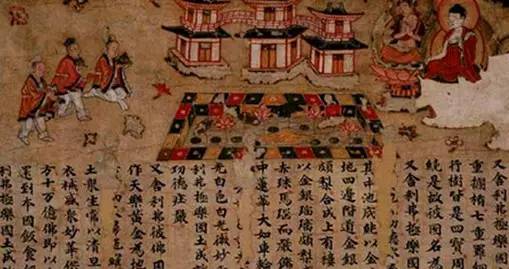 又舍利弗
重欄楯七重羅
行樹皆是四寶周
繞是故彼國名為
又舍利弗
其中池底純以金
地四邊階道金銀
頗梨合成上有樓
以金銀瑠璃頗梨
赤珠馬瑙而嚴飾
中蓮華大如車輪
光白色白光微妙
利弗極樂國土成
功德莊嚴
又舍利弗彼佛國
作天樂黃金為地
土眾生常以清旦
衣祴盛眾妙華
方十万億佛即以
還到本國飯食
利弗極樂國土成